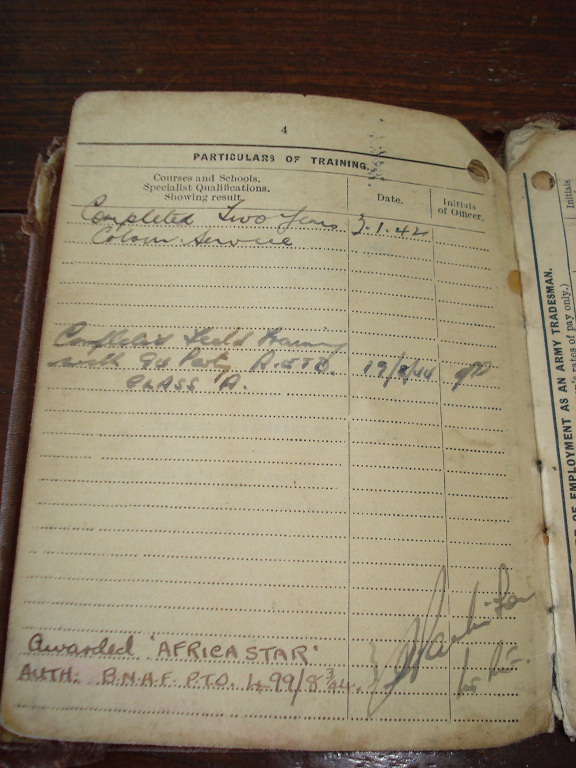 4
PARTICULARS OF TRAINING.
Courses and Schools.
Specialist Qualifications.
Showing result.
Date.
Initials
of Officer.
Completed Two Years 3.1.42
Colour Service
Completed Field Training
with 94 Party A.E.T.D. 19/8/44
CLASS 'A'.
Awarded 'AFRICA STAR'
AUTH: B.N.A.F. P.T.O. 499/8 3/44.
Initials
OF EMPLOYMENT AS AN ARMY TRADESMAN.
rates of pay only.)